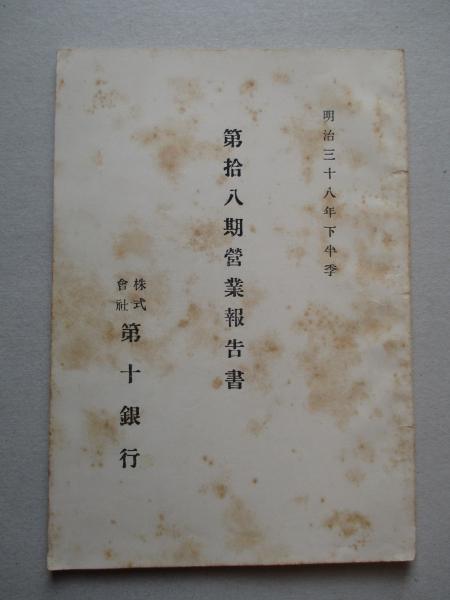 明治三十八年下半季
第拾八期營業報告書
株式會社第十銀行